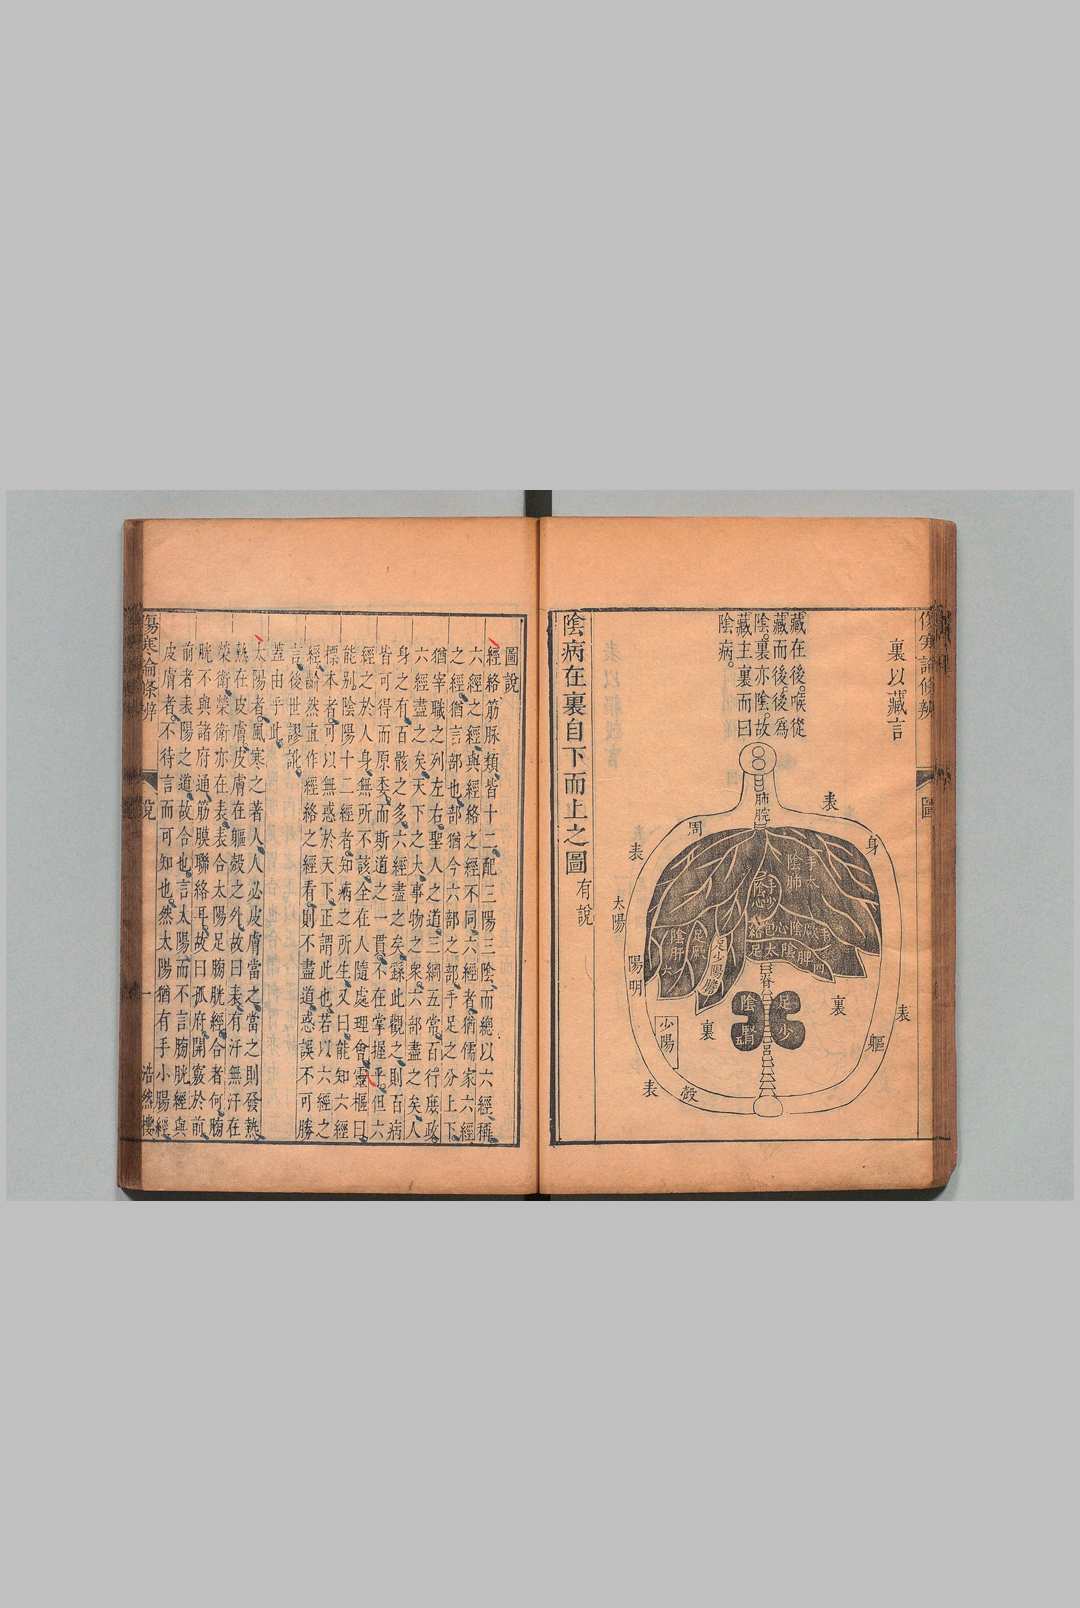 傷寒論條辨
圖
裏以藏言
藏在後喉從
藏而後後爲
陰裏亦陰故
藏主裏而曰
陰病
肺脘
表
身
周
表
手太
陰肺
手少
陰心
手厥
陰心
包絡
足太
陰脾
足厥
陰肝
足少陽膽
脊
呂
太陽
陽明
少陽
足少
陰腎
裏
裏
表
軀
殼
表
陰病在裏自下而上之圖
有說
圖說
經絡筋脉類皆十二配三陽三陰而總以六經稱
六經之經與經絡之經不同六經者猶儒家六經
之經猶言部也部猶今六部之部手足之分上下
猶宰職之列左右聖人之道三綱五常百行庶政
六經盡之矣天下之大事物之衆六部盡之矣人
身之有百骸之多六經盡之矣繇此觀之則百病
皆可得而原委而斯道之一貫不在掌握乎但六
經之於人身無所不該全在人隨處理會靈樞曰
能別陰陽十二經者知病之所生又曰能知六經
標本者可以無惑於天下正謂此也若以六經之
經斷然直作經絡之經看則不盡道惑誤不可勝
言後世謬訛
蓋由乎此
太陽者風寒之著人人必皮膚當之當之則發熱
熱在皮膚皮膚在軀殼之外故曰表有汗無汗在
榮衛榮衛亦在表表合太陽足膀胱經合者何膀
胱不與諸府通筋膜聯絡耳故曰孤府開竅於前
前者表陽之道故合也言太陽而不言膀胱經與
皮膚者不待言而可知也然太陽猶有手小腸經
傷寒論條辨
說
一
浩然樓